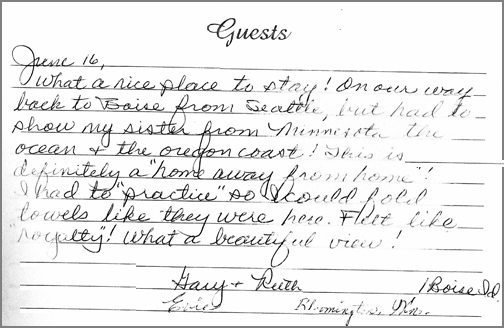 Guests
June 16,
What a nice place to stay! On our way
back to Boise from Seattle, but had to
show my sister from Minnesota the
ocean & the oregon coast! This is
definitely a "home away from home"!
I had to "practice" so I could fold
towels like they were here. Felt like
"royalty"! What a beautiful view!
Gary + Ruth Boise Id.
Evie Bloomington, Mn.